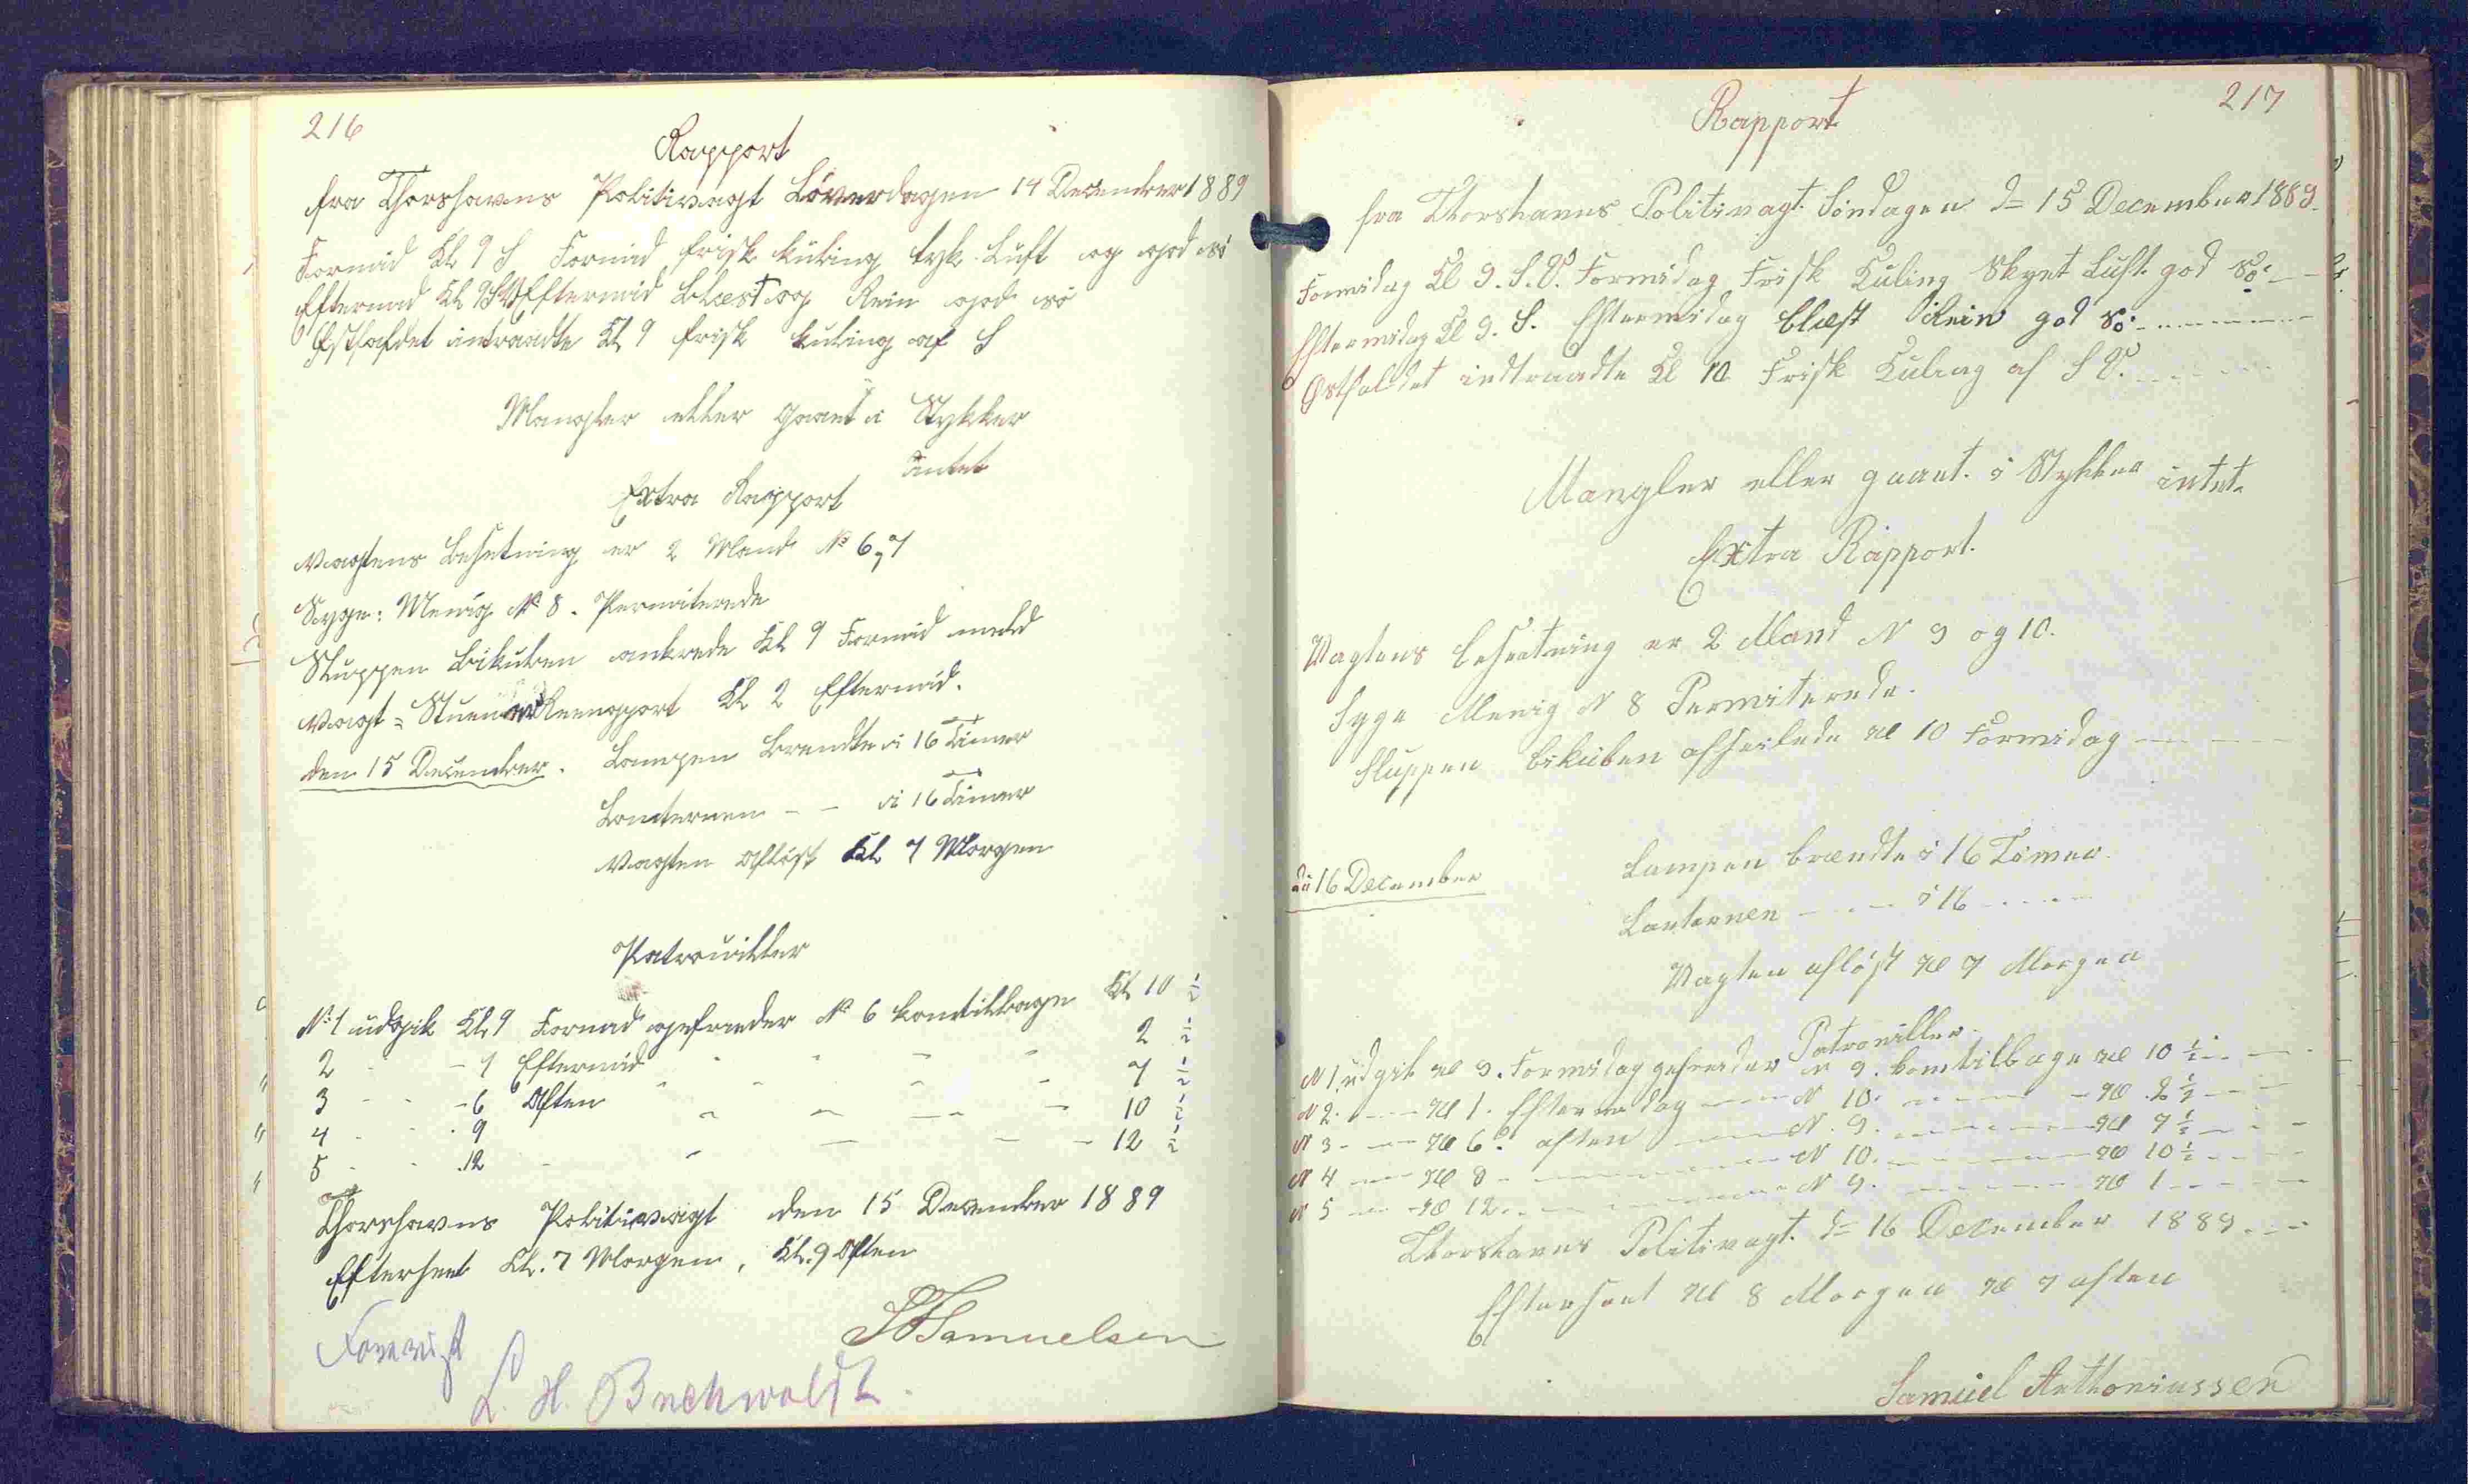 216
Rapport
fra Thorshavns Politivagt Löverdagen 14 December 1889
Formid Kl 9 S Formid frisk kuling tyk Luft og god sö
Eftermid Kl 9 SV Eftermid blæst og Rein god sö
Østfaldet intraadte Kl 9 frisk kuling af S
Mangler eller gaaet i Stykker
intet
Extra Rapport
Vagtens Besetning er 2 Mand No 6, 7
Syge: Menig No 8. Permiterede
Sluppen Bikuben ankrede Kl 9 Formid
Vagt-Stuen Kl 2 Eftermid.
den 15 December. Lampen brendte i 16 Timer
Lanternen - - i 16 Timer
Vagten Aflöst Kl 7 Morgen
Patrouiller
No 1 udgik Kl 9 Formid gefreider No 6 kom tilbage Kl 10 1/2
2 - - 1 Eftermid - - - - 2 1/2
3 - - 6 Aften - - - - 7 1/2
4 - - 9 - - - - 10 1/2
5 - - 12 - - - - 12 1/2
Thorshavns Politivagt den 15 December 1889
Efterseet Kl. 7 Morgen, Kl. 9 Aften
Samuelsen
Forevist
L. H. Buchwaldt
217
Rapport
fra Thorshavns Politivagt Söndagen d= 15 December 1889.
Formidag Kl 9. S.V. Formidag Frisk Kuling Skyet Luft god Sö.
Eftermidag Kl 9. S. Eftermidag blæst Rein god Sö.
Østfaldet indtraadte Kl 10 Frisk Kuling af S V.
Mangler eller gaaet. i Stykker intet.
Extra Rapport.
Vagtens besætning er 2 Mand N 9 og 10.
Syge Menig N 8 Permiterede.
Sluppen Bikuben afseilede Kl 10 Formidag
16 December
Lampen brændte i 16 Timer.
Lanternen - - - i 16 - - -
Vagten aflöst Kl 7 Morgen
Patrouiller
N 1 udgik Kl 9. Formidag gefreider N 9. kom tilbage Kl 10 1/2
N 2. - - Kl 1. Eftermidag - - N 10. - - - Kl 2 1/2
N 3 - - Kl 6. aften - - N. 9. - - - Kl 7 1/2
N 4 - - Kl 9 - - - N 10. - - - Kl 10 1/2
N 5 - - Kl 12. - - - N 9. - - - Kl 1
Thorshavns Politivagt. d= 16 December 1889
Efterseet Kl 8 Morgen Kl 7 aften
Samuel Anthoniussen